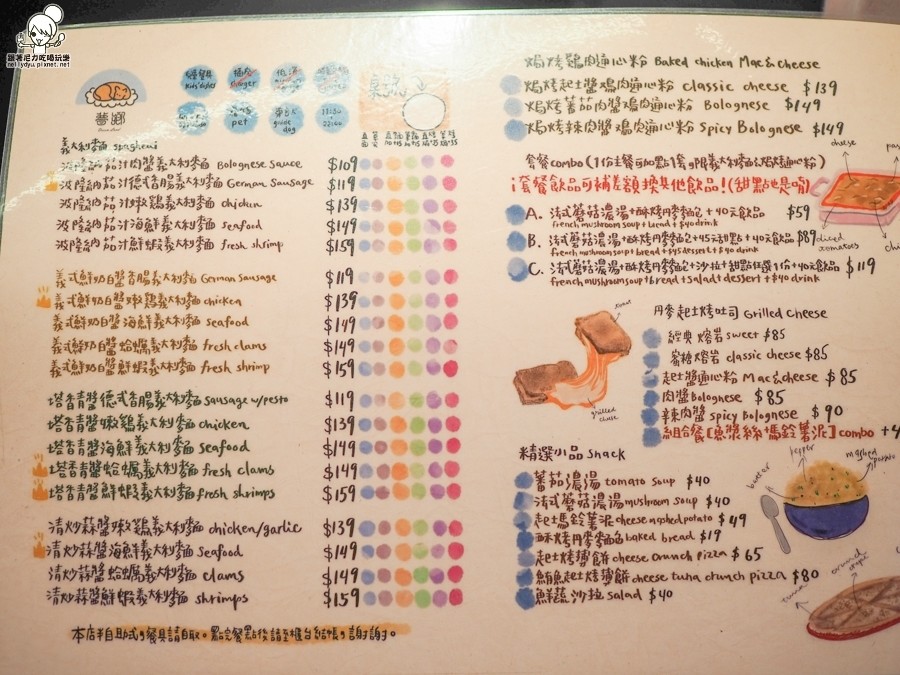 跟著尼力吃喝玩樂
nellydyu.pixnet.net
Kids' dishes
pet
guide dog
夢鄉
義大利麵 spaghetti
波隆納茄汁肉醬義大利麵 Bolognese Sauce $109
波隆納茄汁德式香腸義大利麵 German Sausage $119
波隆納茄汁嫩鷄義大利麵 chicken $139
波隆納茄汁海鮮義大利麵 seafood $149
波隆納茄汁鮮蝦義大利麵 fresh shrimp $159
義式鮮奶白醬香腸義大利麵 German sausage $119
義式鮮奶白醬嫩鷄義大利麵 chicken $139
義式鮮奶白醬海鮮義大利麵 seafood $149
義式鮮奶白醬蛤蠣義大利麵 fresh clams $149
義式鮮奶白醬鮮蝦義大利麵 fresh shrimp $159
塔香青醬德式香腸義大利麵 sausage w/pesto $119
塔香青醬嫩鷄義大利麵 chicken $139
塔香青醬海鮮義大利麵 seafood $149
塔香青醬蛤蠣義大利麵 fresh clams $149
塔香青醬鮮蝦義大利麵 fresh shrimps $159
清炒蒜醬嫩鷄義大利麵 chicken/garlic $139
清炒蒜醬海鮮義大利麵 seafood $149
清炒蒜醬蛤蠣義大利麵 clams $149
清炒蒜醬鮮蝦義大利麵 shrimps $159
本店半自助式，餐具請自取。點完餐點後請至櫃台結帳，謝謝。
焗烤鷄肉通心粉 Baked chicken Mac & cheese
焗烤起士醬鷄肉通心粉 classic cheese $139
焗烤蕃茄肉醬鷄肉通心粉 Bolognese $149
焗烤辣肉醬鷄肉通心粉 Spicy Bolognese $149
套餐combo (1份主餐可加點1套，限義大利麵及焗烤通心粉)
¡套餐飲品可補差額換其他飲品！(甜點也是唷)
A. 法式蘑菇濃湯+酥烤丹麥麵包+40元飲品 $59
french mushroom soup + bread + $40 drink
B. 法式蘑菇濃湯+酥烤丹麥麵包+45元甜點+40元飲品 $89
french mushroom soup + bread + $45 dessert + $40 drink
C. 法式蘑菇濃湯+酥烤丹麥麵包+沙拉+甜點任選1份+40元飲品 $119
french mushroom soup + bread + salad + dessert + $40 drink
cheese
diced tomatoes
丹麥起士烤吐司 Grilled Cheese
經典熔岩 sweet $85
蜜糖熔岩 classic cheese $85
起士醬通心粉 Mac & cheese $85
肉醬 Bolognese $85
辣肉醬 spicy Bolognese $90
組合餐[魚漿絲+馬鈴薯泥] combo +4
toast
grilled cheese
精選小品 snack
蕃茄濃湯 tomato soup $40
法式蘑菇濃湯 mushroom soup $40
起士馬鈴薯泥 cheese mashed potato $49
酥烤丹麥麵包 baked bread $19
起士烤薄餅 cheese crunch pizza $65
鮪魚起士烤薄餅 cheese tuna crunch pizza $80
鮮蔬沙拉 salad $40
butter
pepper
mashed potato
tuna
crunch crepe